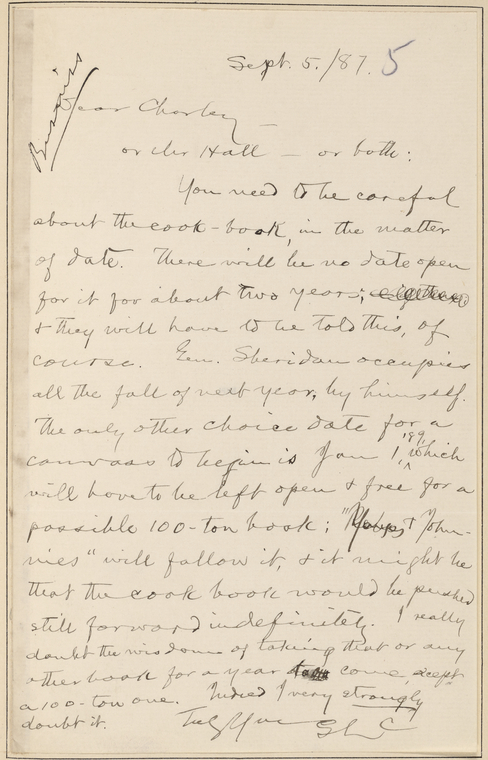 Sept. 5./87. 5
Business
Dear Charley —
or Mr Hall — or both:
You need to be careful
about the cook-book, in the matter
of date. There will be no date open
for it for about two years;
& they will have to be told this, of
course. Gen. Sheridan occupies
all the fall of next year, by himself.
The only other choice date for a
canvass to begin is Jan 1, '89, which
will have to be left open & free for a
possible 100-ton book; "Yanks & John-
nies" will follow it, & it might be
that the cook book would be pushed
still forward indefinitely. I really
doubt the wisdom of taking that or any
other book for a year to come except
a 100-ton one. Indeed I very strongly
doubt it. Truly Yours SLC